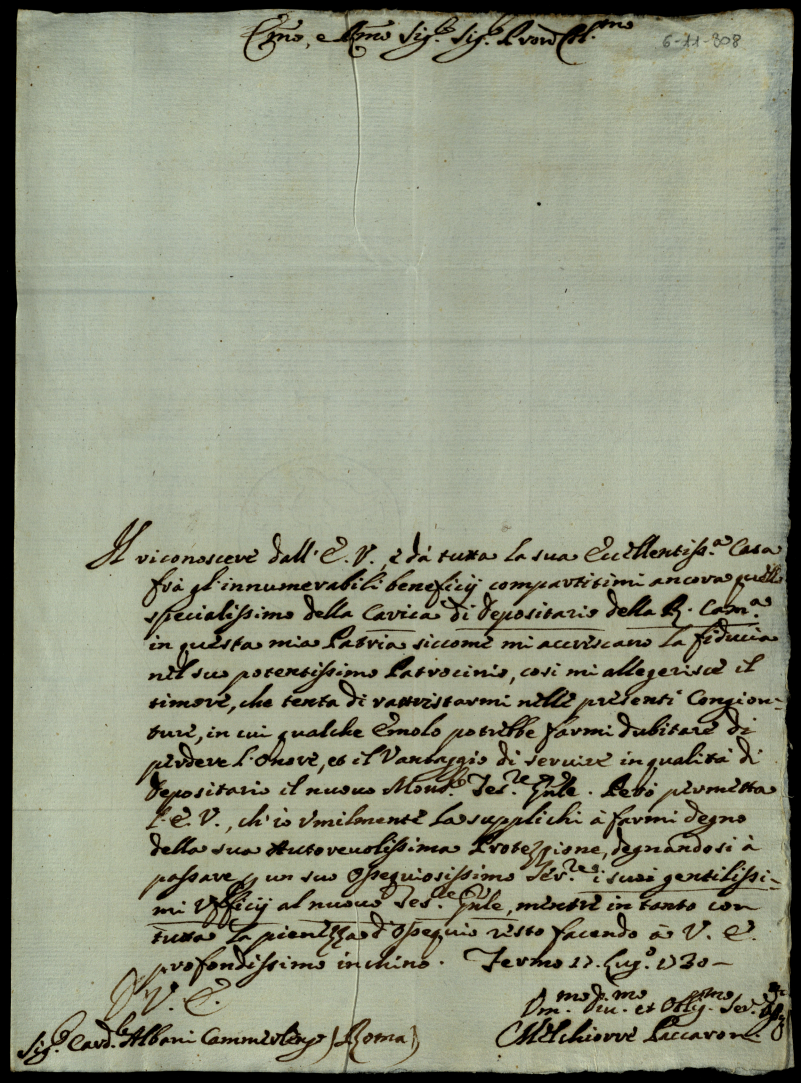 Em̃o, e Rm̃o Sig.re Sig.re P.ron Col.mo
6-11-308
Il riconoscere dall'E. V., e dà tutta la sua Eccellentiss.a Casa
frà gl'innumerabili beneficij compartitimi ancora quello
specialissimo della Carica di Depositario della R. Cam.a
in questa mia Patria siccome mi accrescano la fiducia
nel suo potentissimo Patrocinio, così mi allegerisce il
timore, che tenta di rattristarmi nelle presenti Congion-
ture, in cui qualche Emolo potrebbe farmi dubitare di
perdere l'onore, et il Vantaggio di servire in qualità di
Depositario il nuovo Mons.re Tes.re Gnle. Però permetta
l'E. V., ch'io Umilmente la supplichi à farmi degno
della sua Autorevolissima Protezzione, degnandosi à
passare p un suo Ossequiosissimo Ser.re i suoi gentilissi-
mi Ufficij al nuovo Tes.re Gnle, mentre in tanto con
tutta la pienezza d'Ossequio resto facendo à V. E.
profondissimo inchino. Fermo 17. Lug.o 1730 -
D V. E.
Um.mo Div.mo et Obblig.mo Ser.re
Sig.re Card.le Albani Cammerlengo (Roma)
Melchiorre Paccaroni